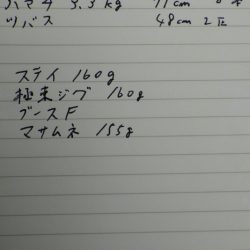 ハマチ 3.3kg 71cm
ツバス 48cm 2匹
ステイ 160g
極東ジグ 160g
ブースF
マサムネ 155g